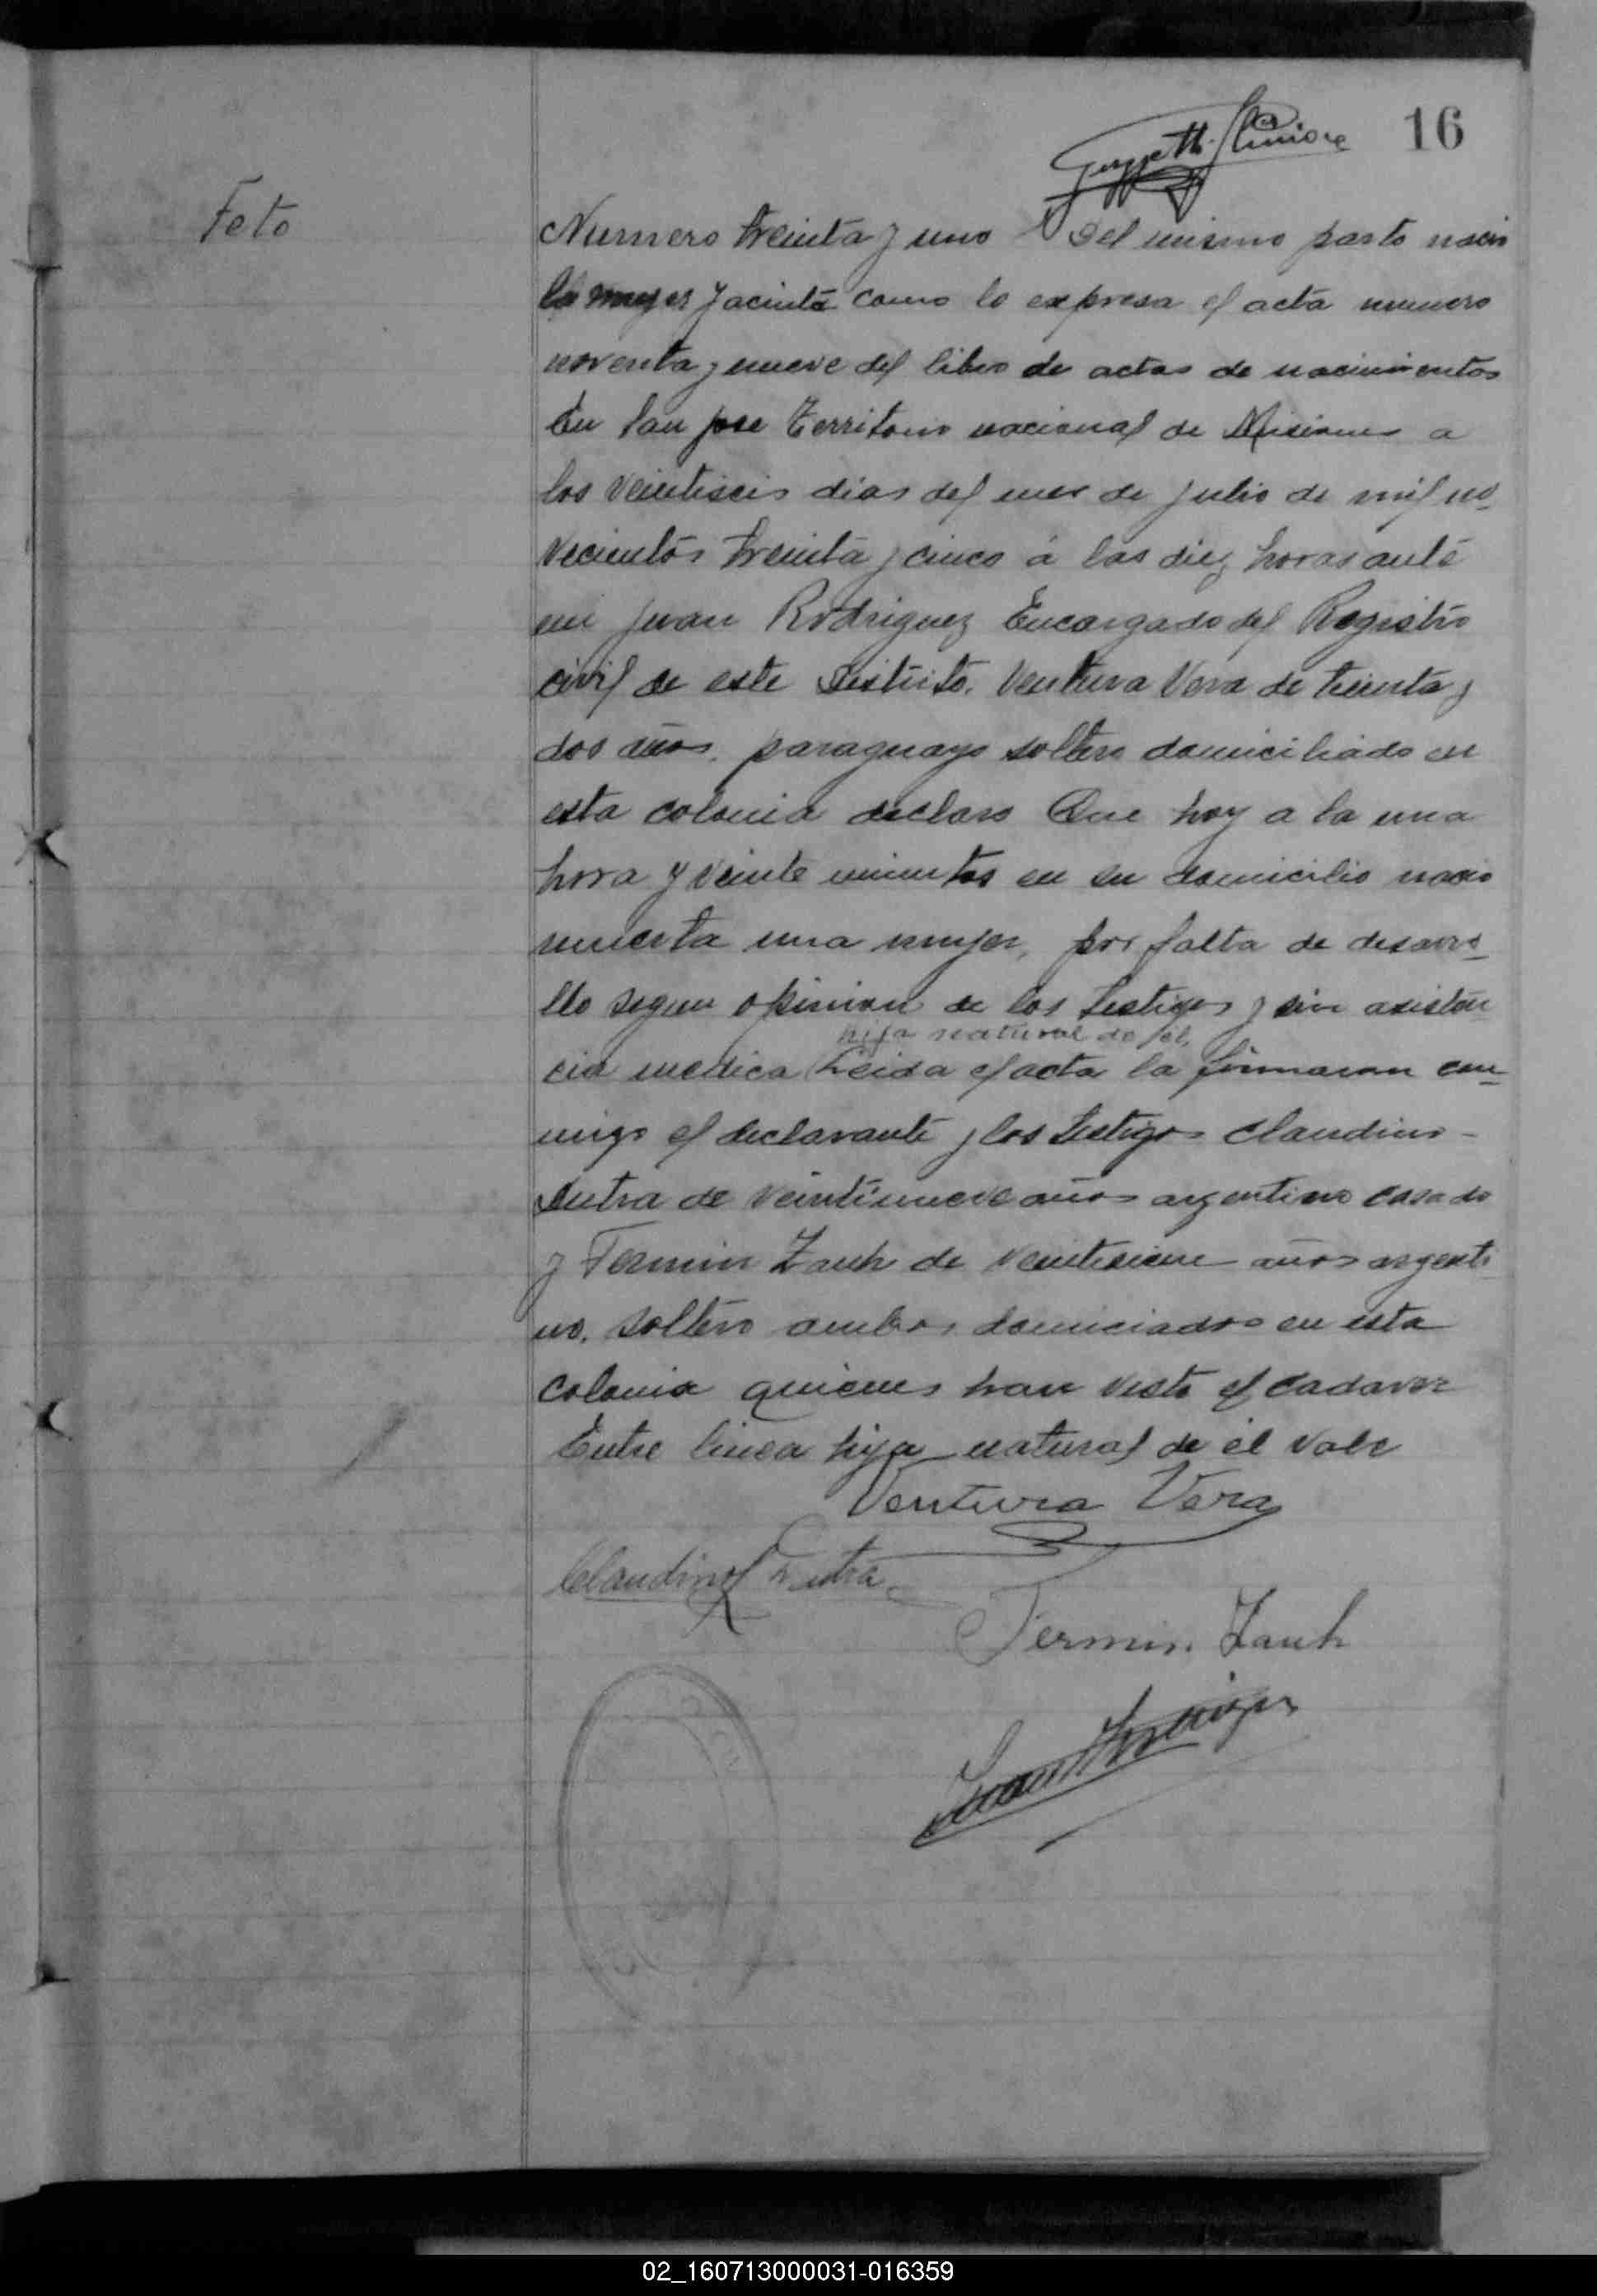 16
Feto
Numero treinta y uno Del mismo parto nacio
la mujer Jacinta como lo expresa el acta numero
noventa y nueve del libro de actas de nacimientos
En San Jose Territorio nacional de Misiones a
los veintiseis dias del mes de julio de mil no
vecientos treinta y cinco a las diez horas ante
mi Juan Rodriguez Encargado del Registro
civil de este Distrito. Ventura Vera de treinta y
dos años. paraguayo soltero domiciliado en
esta colonia declaro Que hoy a la una
hora y veinte minutos en su domicilio nacio
muerta una mujer, por falta de desarro
llo segun opinion de los testigos y sin asisten
hija natural de él,
cia medica Leida el acta la firmaron con
migo el declarante y los testigos Claudino -
Dutra de veintinueve años argentino casado
y Fermin Zauh de años argenti
no. soltero ambos domiciados en esta
colonia quienes han visto el cadaver
Entre linea hija natural de él vale
Ventura Vera
Claudino Dutra
Fermin Zauh
Juan Rodriguez
02_160713000031-016359